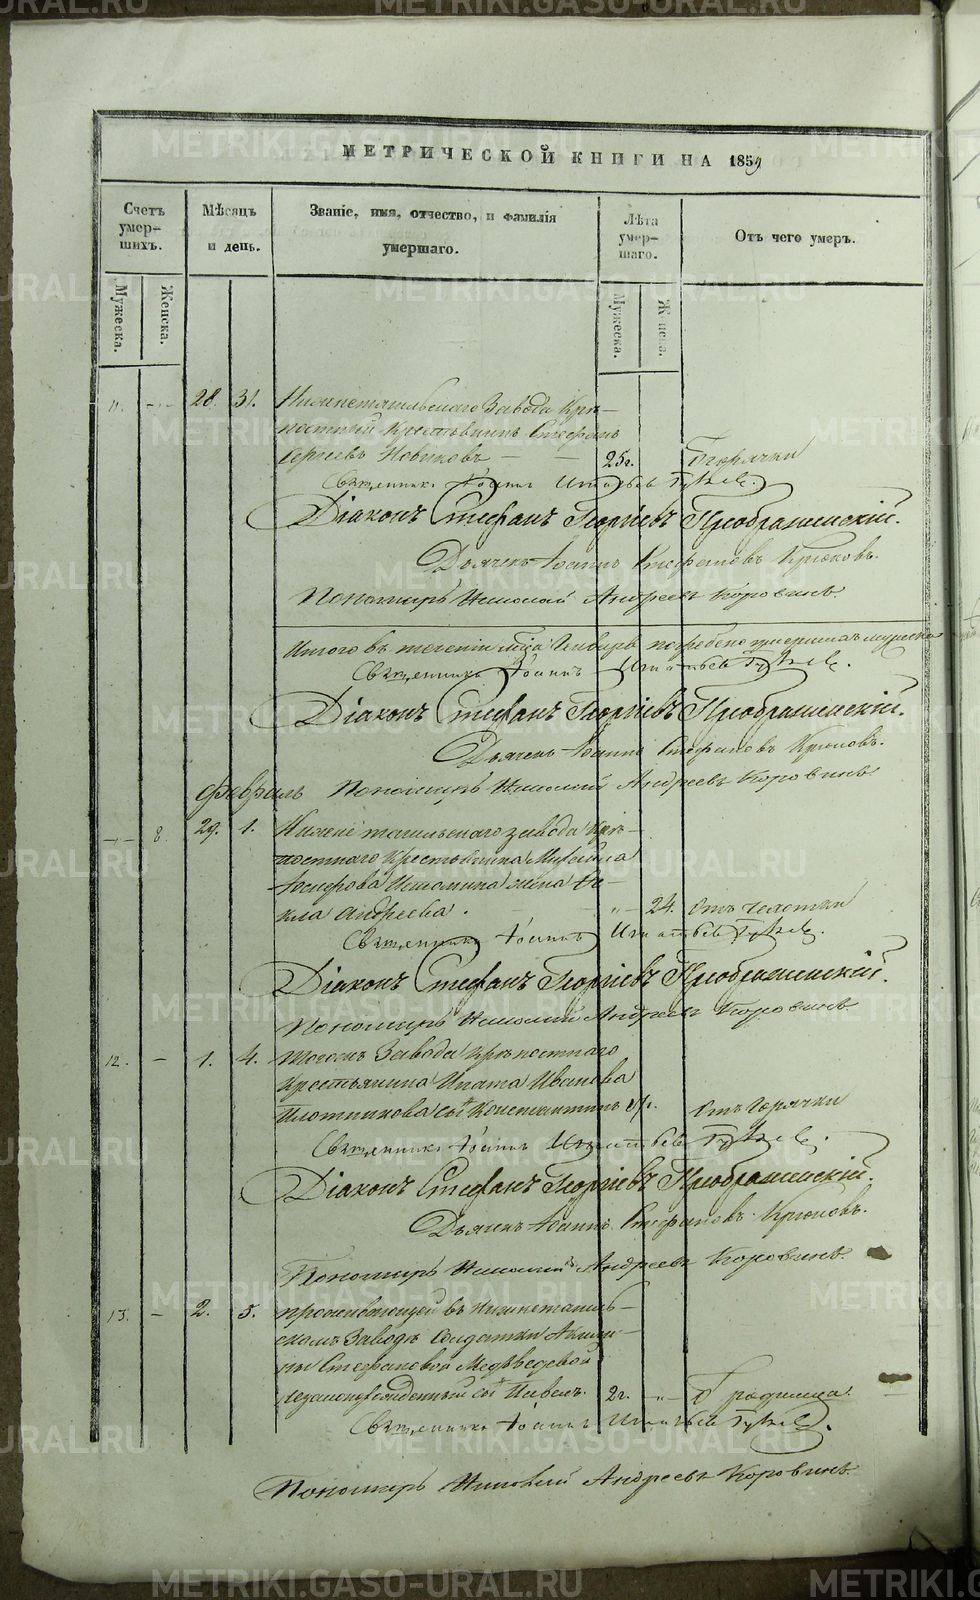 МЕТРИЧЕСКОЙ КНИГИ НА 1859
Счетъ умер-шихъ.
Мѣсяцъ и день.
Званіе, имя, отчество, и фамилія умершаго.
Лѣта умер-шаго.
Отъ чего умеръ.
Мужеска.
Женска.
Мужеска.
Женска.
11. - 28. 31. Нижнетагильскаго Завода Крѣ-
постный Крестьянинъ Стефанъ
Сергіевъ Новиковъ - - 25г. Горячки
Священникъ Іоаннъ Игнатьевъ
Діаконъ Стефанъ Георгіевъ Преображенскій.
Дьячекъ Іоаннъ Стефановъ Крюковъ.
Пономарь Николай Андреевъ Коровинъ.
Итого въ теченіи м-ца Генваря погребено умершихъ мужеска
Священникъ Іоаннъ Игнатьевъ
Діаконъ Стефанъ Георгіевъ Преображенскій.
Дьячекъ Іоаннъ Стефановъ Крюковъ.
Февраль Пономарь Николай Андреевъ Коровинъ
- 8 29. 1. Нижнетагильскаго завода Крѣ-
постнаго Крестьянина Михаила
жена Ѳе-
кла Андреева. „ - 24. Отъ чахотки
Священникъ Іоаннъ Игнатьевъ
Діаконъ Стефанъ Георгіевъ Преображенскій.
Пономарь Николай Андреевъ Коровинъ
12. - 1. 4. Тогожъ Завода Крѣпостнаго
Крестьянина Ипата Иванова
Плотникова сынъ Константинъ Отъ Горячки
Священникъ Іоаннъ Игнатьевъ
Діаконъ Стефанъ Георгіевъ Преображенскій.
Дьячекъ Іоаннъ Стефановъ Крюковъ.
Пономарь Николай Андреевъ Коровинъ.
13. - 2. 5. проживающей въ Нижнетагиль-
скомъ Заводѣ Солдатки Акили-
ны Стефановой Медвѣдевой
незаконорожденный сынъ Павелъ. 2г. - родимца.
Священникъ Іоаннъ Игнатьевъ
Пономарь Николай Андреевъ Коровинъ.
METRIKI.GASO-URAL.RU